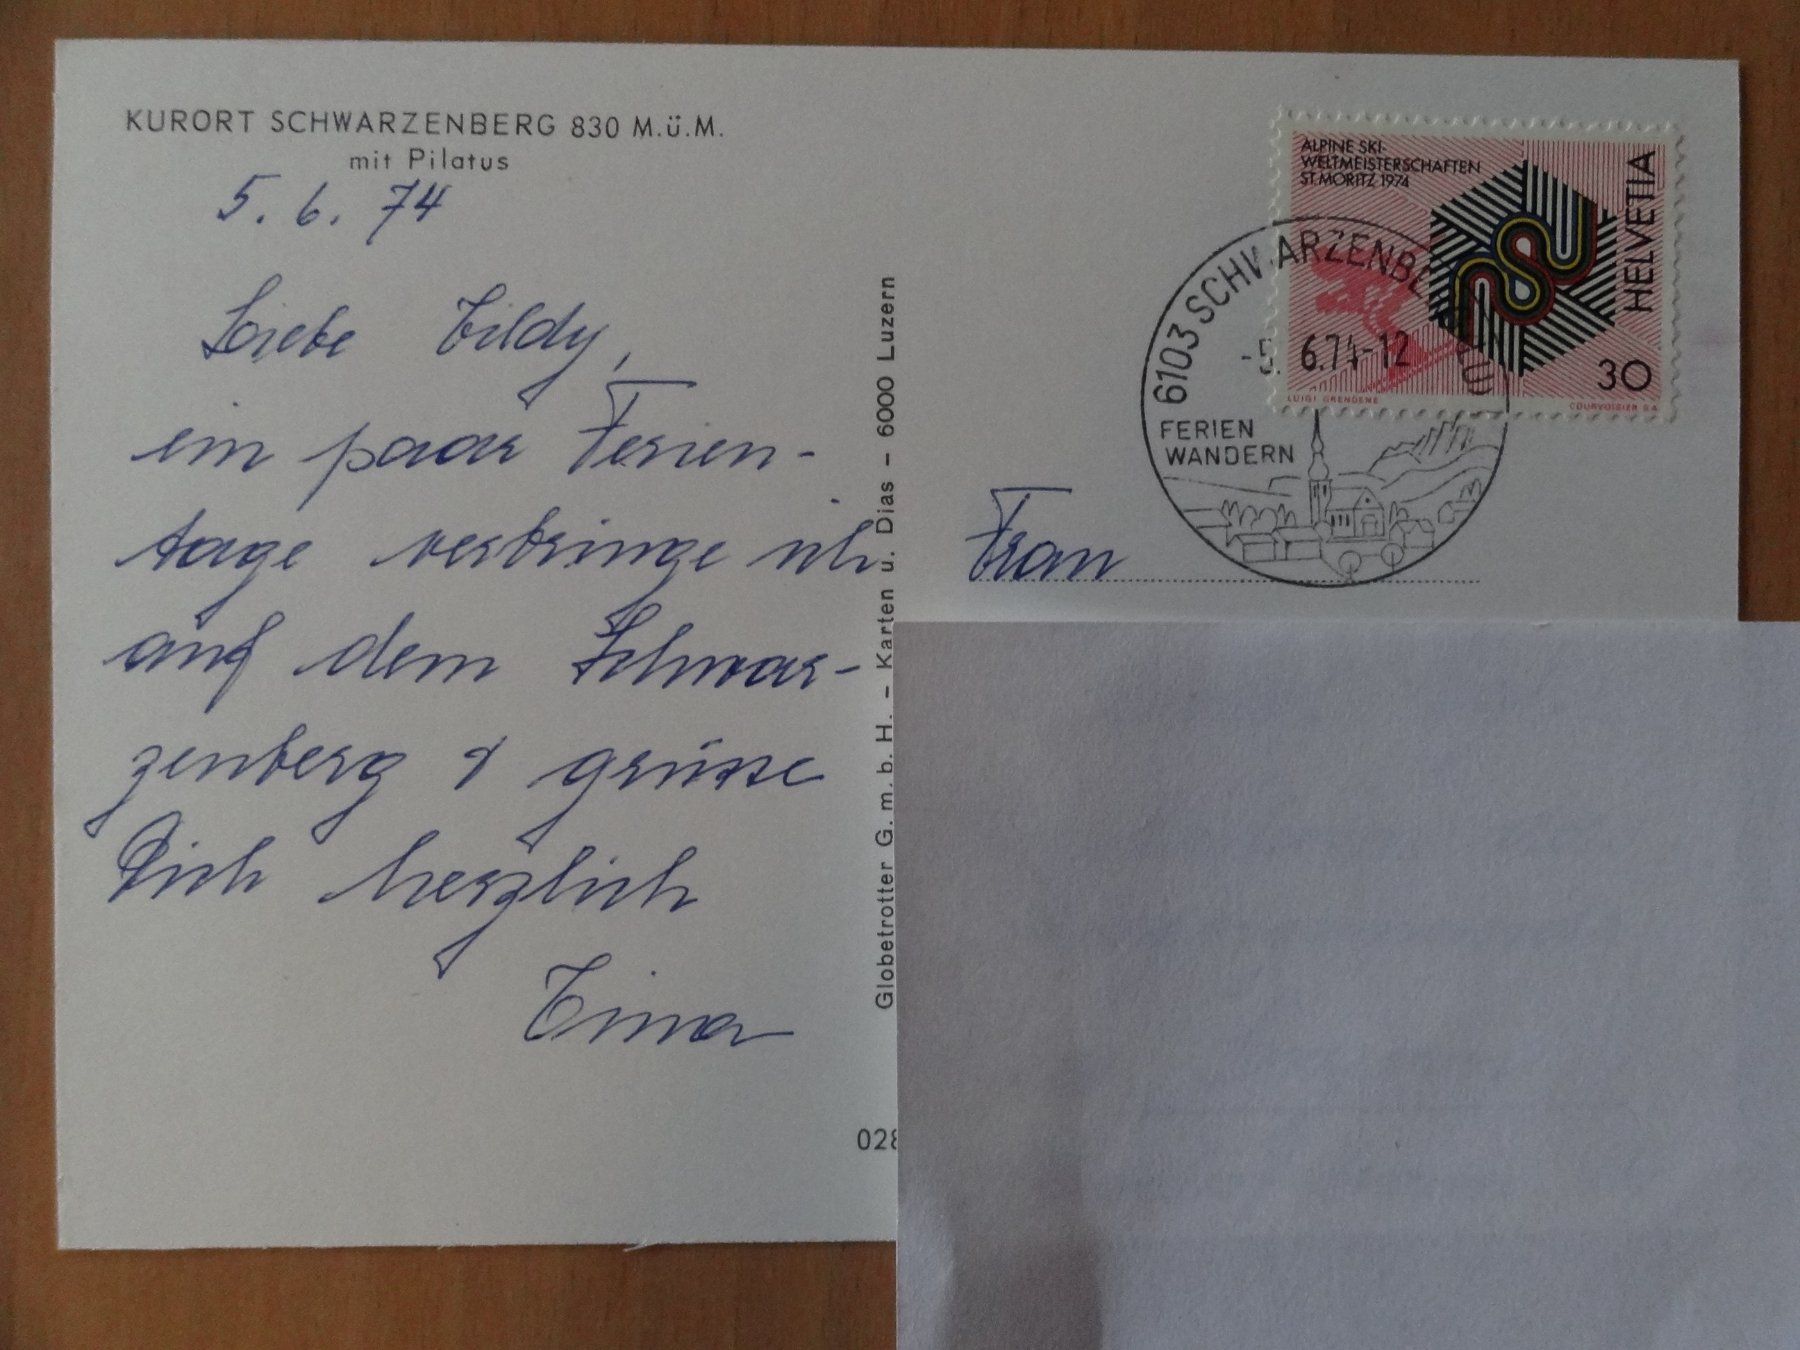 KURORT SCHWARZENBERG 830 M.ü.M.
mit Pilatus
5. 6. 74
Liebe Tildy,
ein paar Ferien-
tage verbringe ich
auf dem Schwar-
zenberg & grüsse
Dich herzlich
Tina
Globetrotter G.m.b.H. – Karten u. Dias – 6000 Luzern
028
ALPINE SKI-
WELTMEISTERSCHAFTEN
ST. MORITZ 1974
HELVETIA
30
LUIGI GRENDENE
COURVOISIER SA
6103 SCHWARZENBERG LU
-5. 6.74-12
FERIEN
WANDERN
Frau